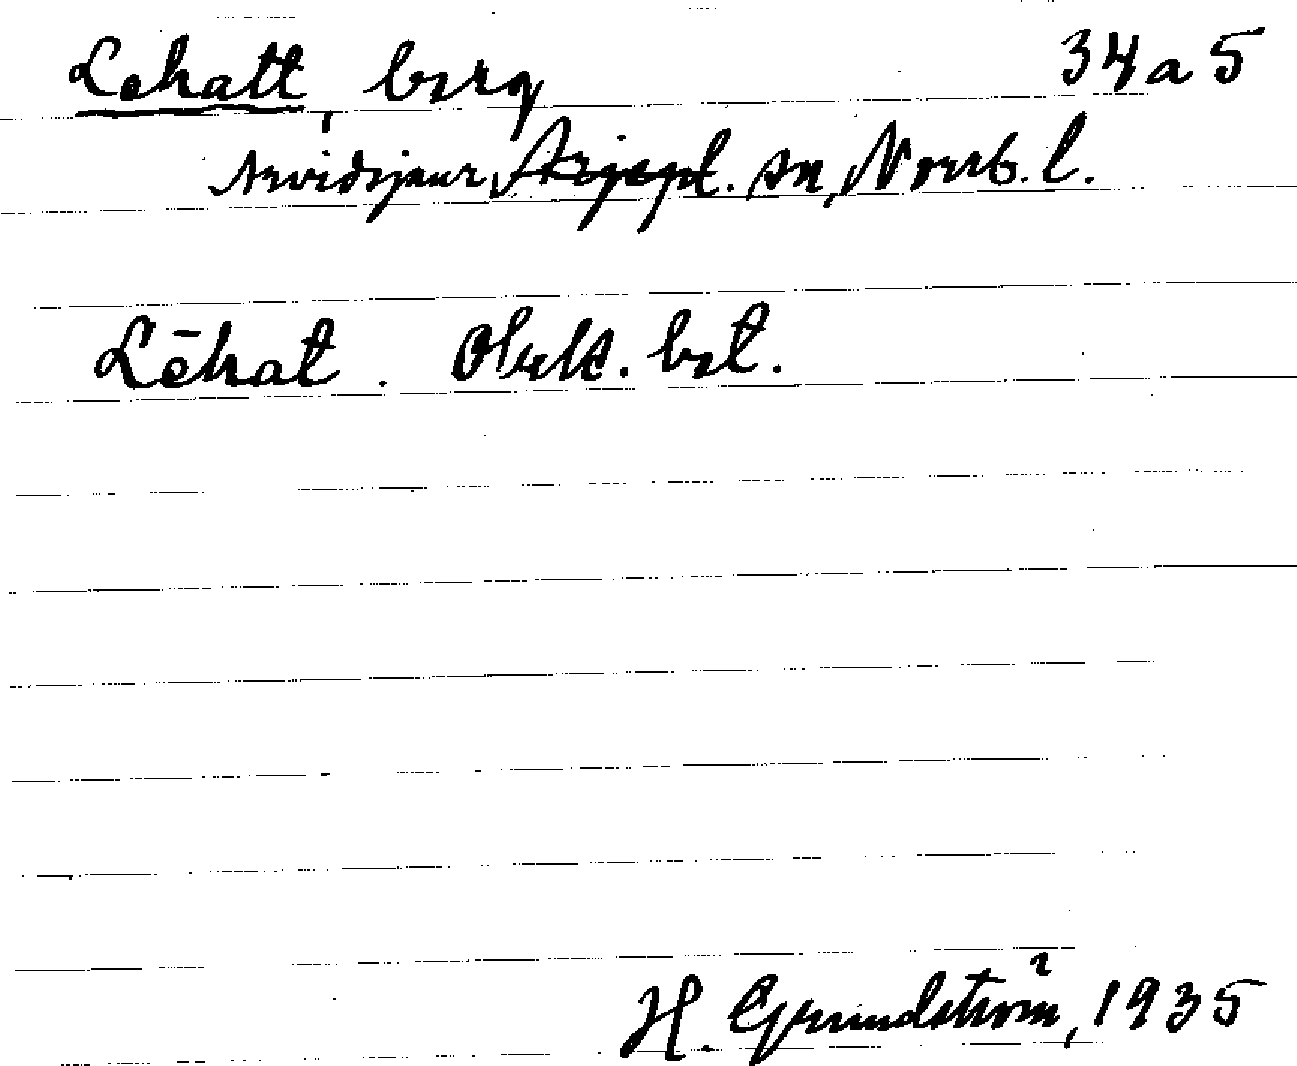 Lehatt, berg 34 a 5
Arvidsjaur, Arjepl. sn, Norrb. l.
Lēhat. Obek. bet.
H. Grundström, 1935